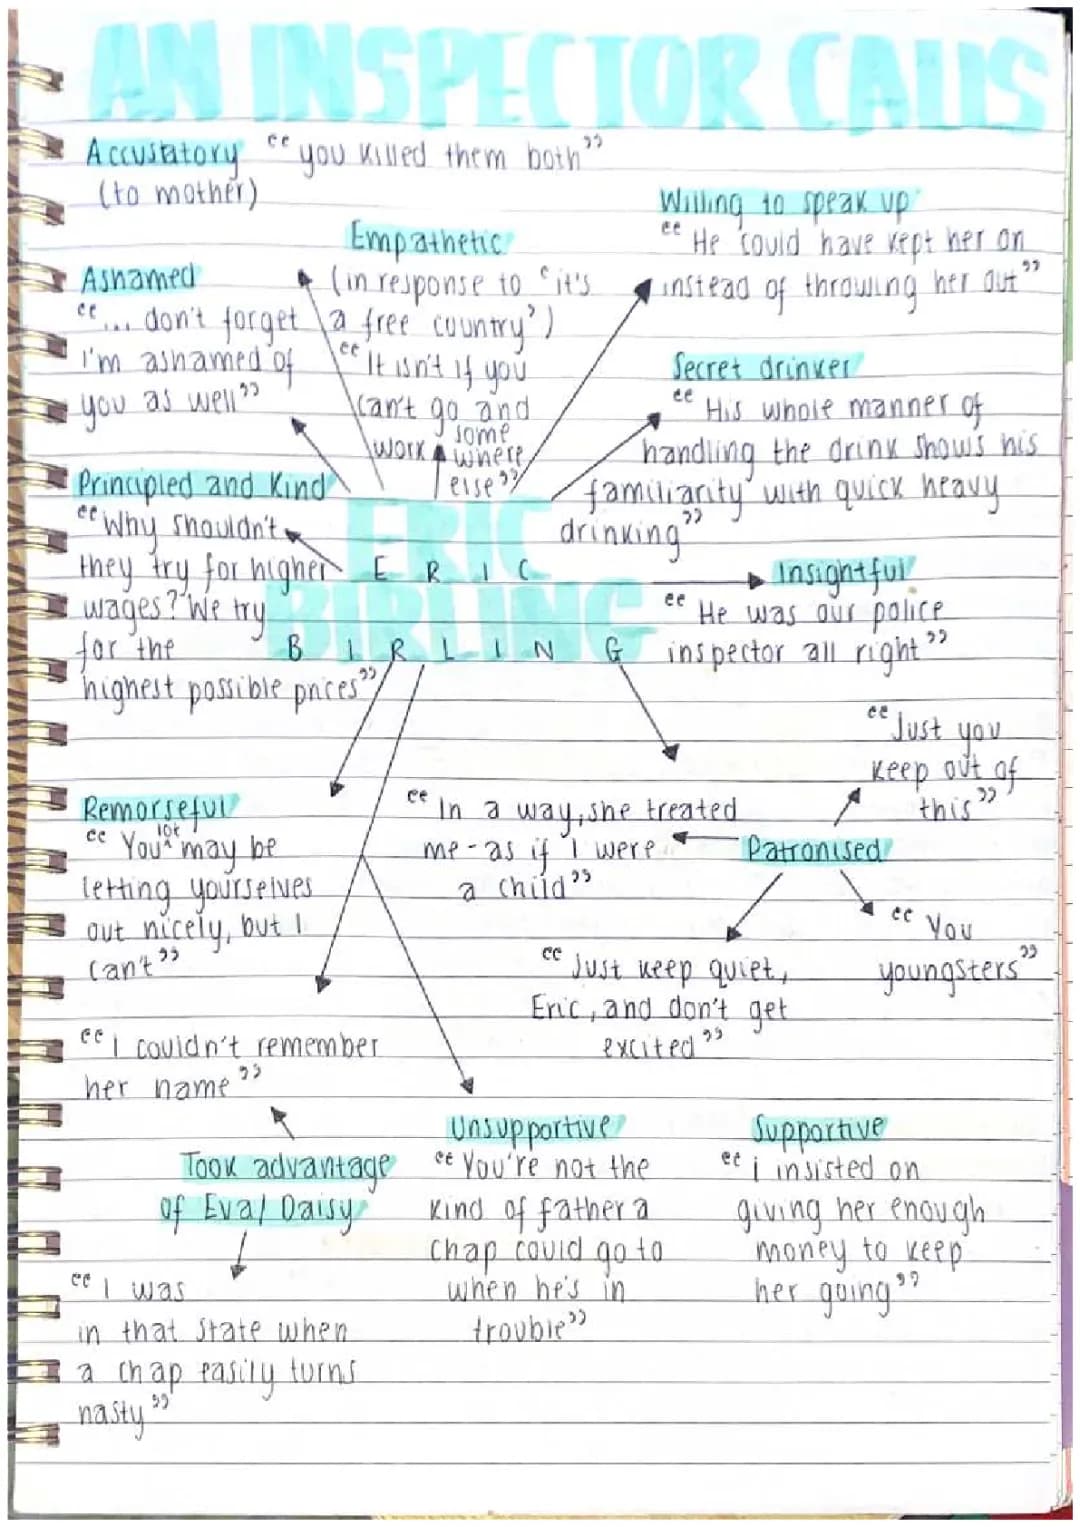 AN INSPECTOR CALLS
Accustatory “you killed them both”
(to mother)
Willing to speak up
“He could have kept her on
instead of throwing her out”
Empathetic
(in response to ‘it's
a free country’)
“It isn't if you
can't go and
work some
where
else”
Ashamed
“... don't forget
I'm ashamed of
you as well”
Secret drinker
“His whole manner of
handling the drink shows his
familiarity with quick heavy
drinking”
Principled and Kind
“Why shouldn't
they try for higher
wages? We try
for the
highest possible prices”
ERIC
BIRLING
E R I C
B I R L I N G
Insightful
“He was our police
inspector all right”
Remorseful
“You lot may be
letting yourselves
out nicely, but I
can't”
“In a way, she treated
me - as if I were
a child”
Patronised
“Just you
keep out of
this”
“You
youngsters”
“Just keep quiet,
Eric, and don't get
excited”
“I couldn't remember
her name”
Took advantage
of Eva/Daisy
“I was
in that state when
a chap easily turns
nasty”
Unsupportive
“You're not the
kind of father a
chap could go to
when he's in
trouble”
Supportive
“i insisted on
giving her enough
money to keep
her going”